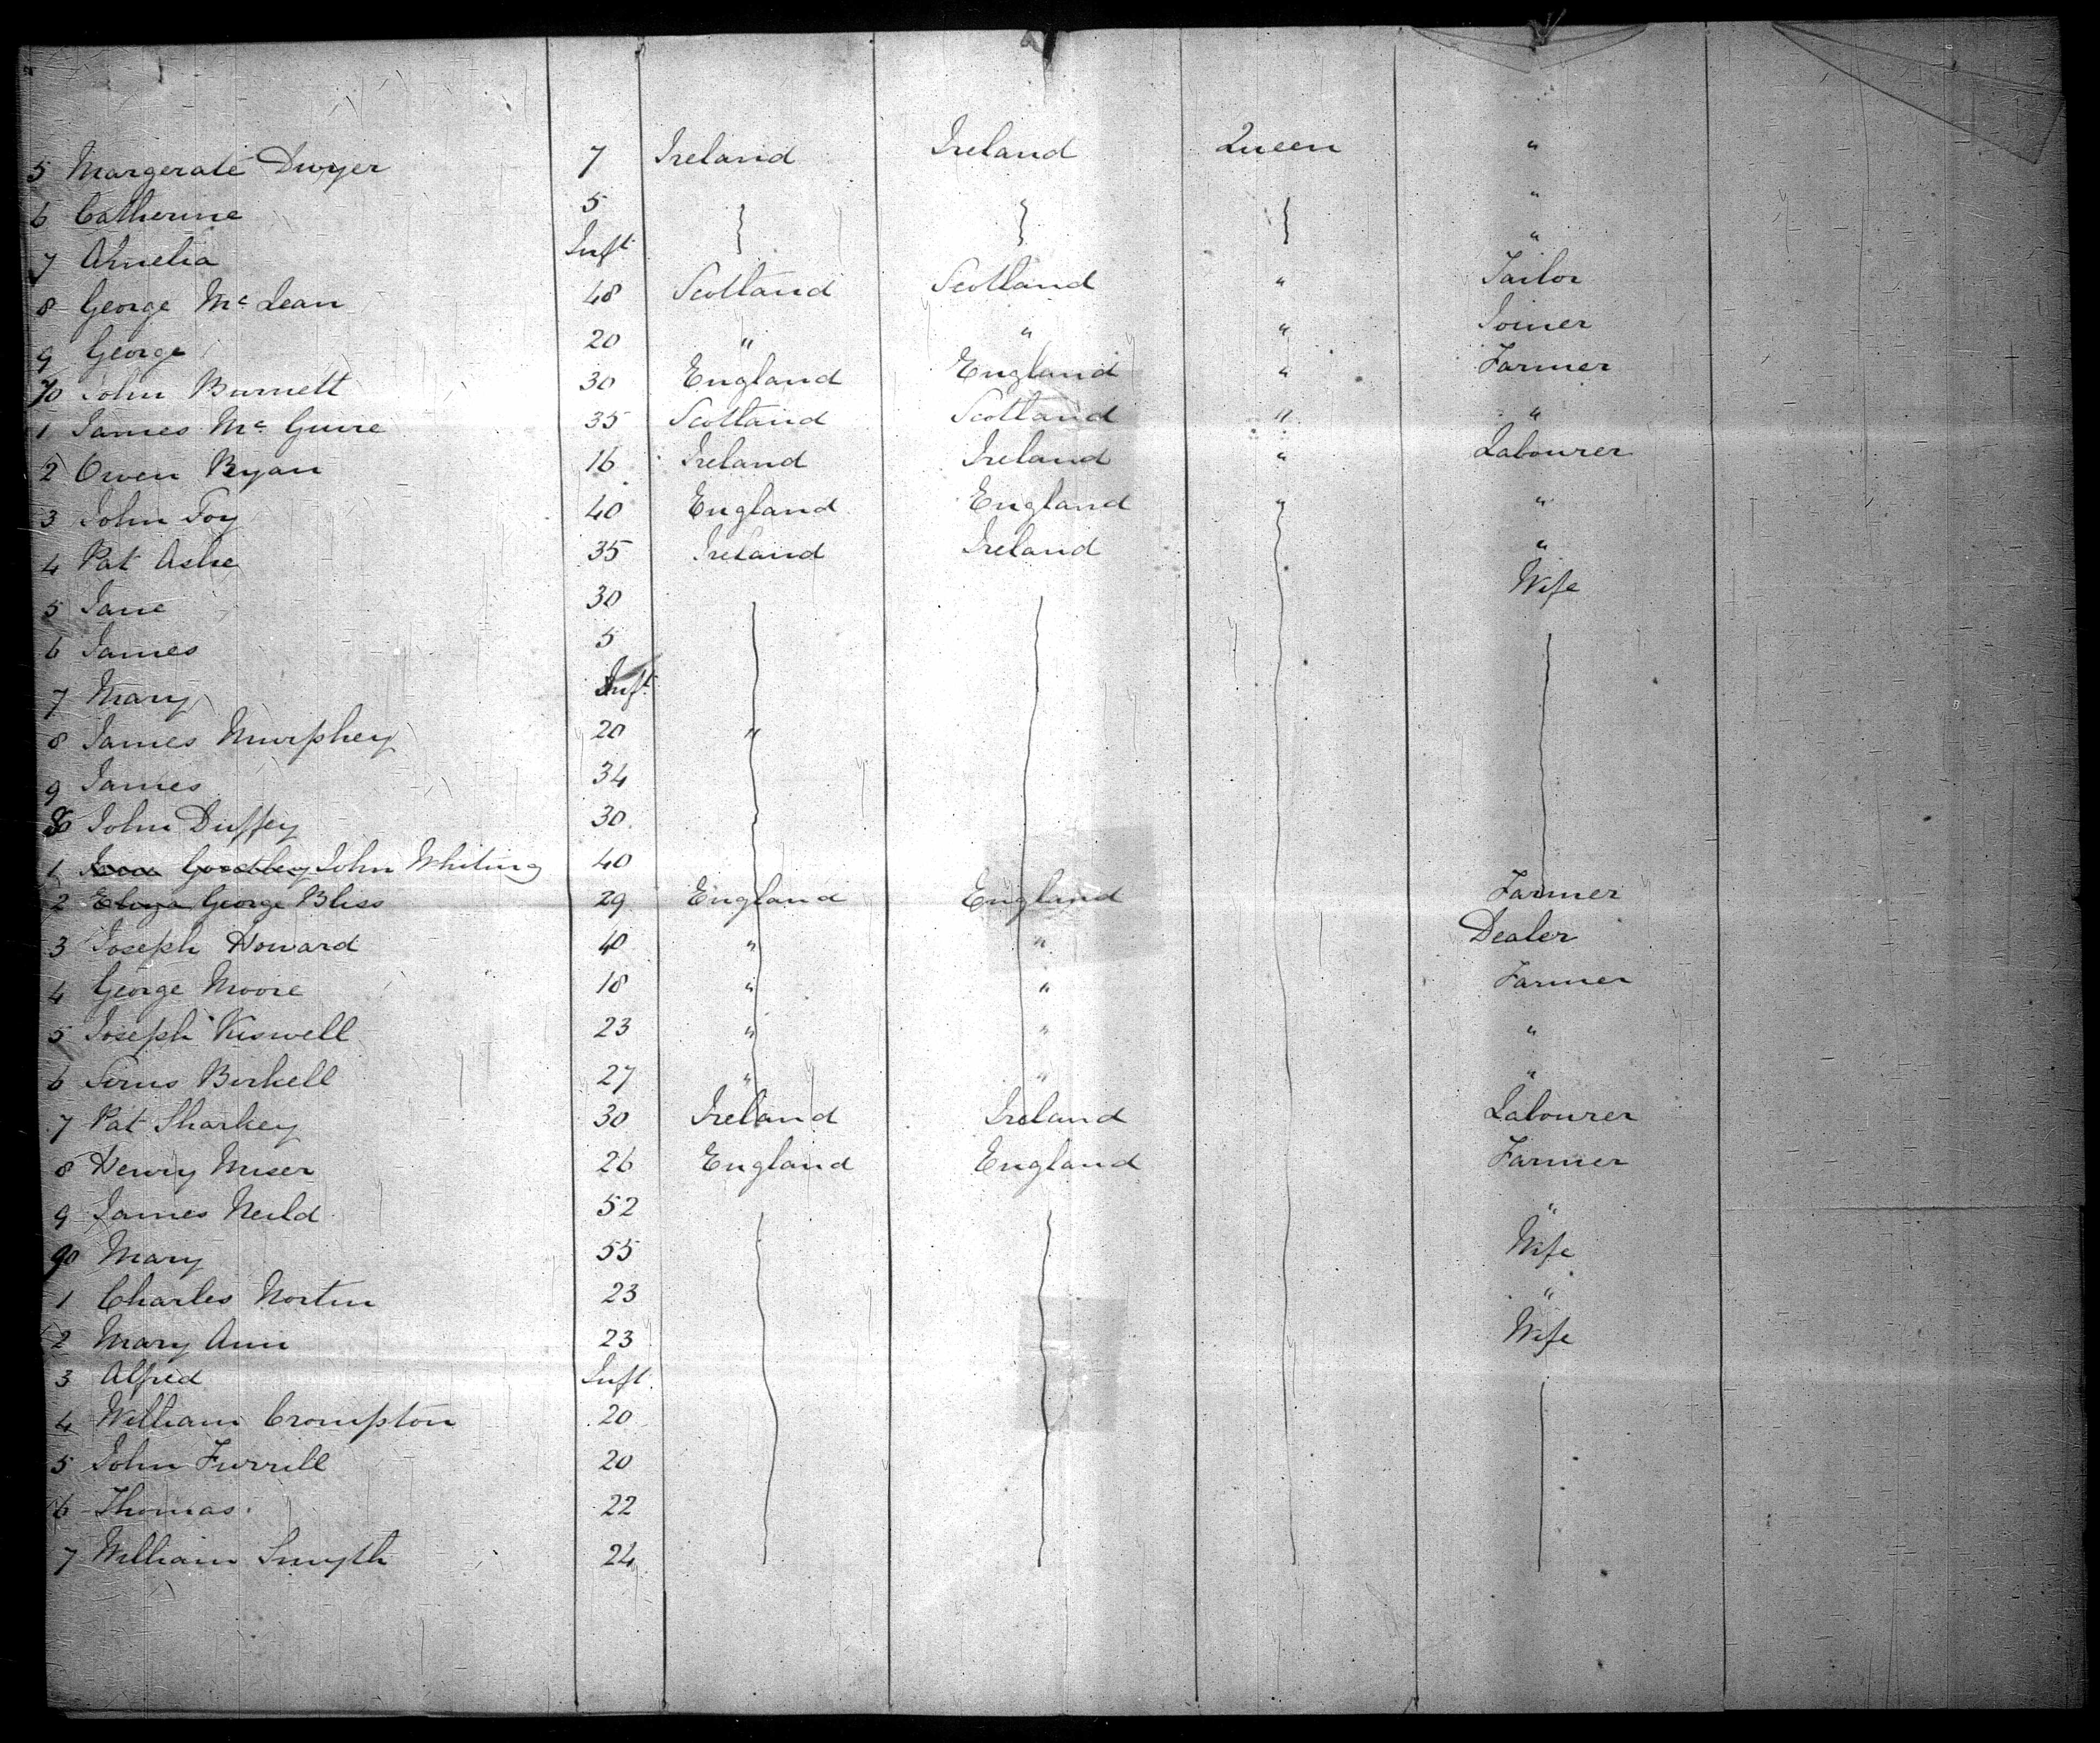 5 Margerate Dwyer 7 Ireland Ireland Queen "
6 Catherine 5 "
7 Amelia Inft "
8 George Mc Lean 48 Scotland Scotland " Tailor
9 George 20 " " " Joiner
70 John Burnett 30 England England " Farmer
1 James Mc Guire 35 Scotland Scotland " "
2 Owen Ryan 16 Ireland Ireland " Labourer
3 John Foy 40 England England " "
4 Pat Ashe 35 Ireland Ireland "
5 Jane 30 Wife
6 James 5
7 Mary Inft
8 James Murphey 20 "
9 James 34
80 John Duffey 30
1 Goodley John Whiting 40
2 Eliza George Bliss 29 England England Farmer
3 Joseph Howard 40 " " Dealer
4 George Moore 18 " " Farmer
5 Joseph Kiswell 23 " " "
6 27 " " "
7 Pat Sharkey 30 Ireland Ireland Labourer
8 Henry Miser 26 England England Farmer
9 James Neild 52 "
90 Mary 55 Wife
1 Charles Nortin 23 "
2 Mary Ann 23 Wife
3 Alfred Inft.
4 William Crompton 20
5 John Furrell 20
6 Thomas 22
7 William Smyth 24